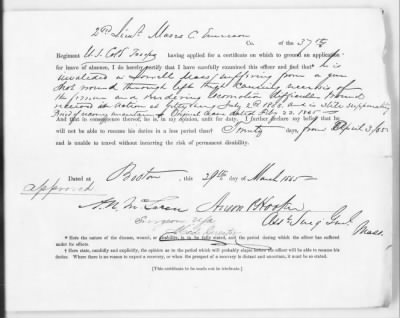 2nd Lieut Moses C Emerson Co. of the 37th
Regiment U.S. Cold Troops having applied for a certificate on which to ground an application
for leave of absence, I do hereby certify that I have carefully examined this officer and find that* he is
suffering from a gun
shot wound through left thigh causing necrosis of
the femur and rendering locomotion difficult wound
received in action at July and is still suppurating
Original leave dated Feb. 22. 1865
And that in consequence thereof, he is, in my opinion, unfit for duty. I further declare my belief that he
will not be able to resume his duties in a less period than† Twenty days, from April 3/65
and is unable to travel without incurring the risk of permanent disability.
Dated at Boston, this 29th day of March 1865
Approved
A. N. McLaren Anson P Hooker
Surgeon USA Asst Surg Genl. Mass.
* Here the nature of the disease, wound, or disability, is to be fully stated, and the period during which the officer has suffered
under its effects.
† Here state, candidly and explicitly, the opinion as to the period which will probably elapse before the officer will be able to resume his
duties. Where there is no reason to expect a recovery, or when the prospect of recovery is distant and uncertain, it must be so stated.
[This certificate to be made out in triplicate.]